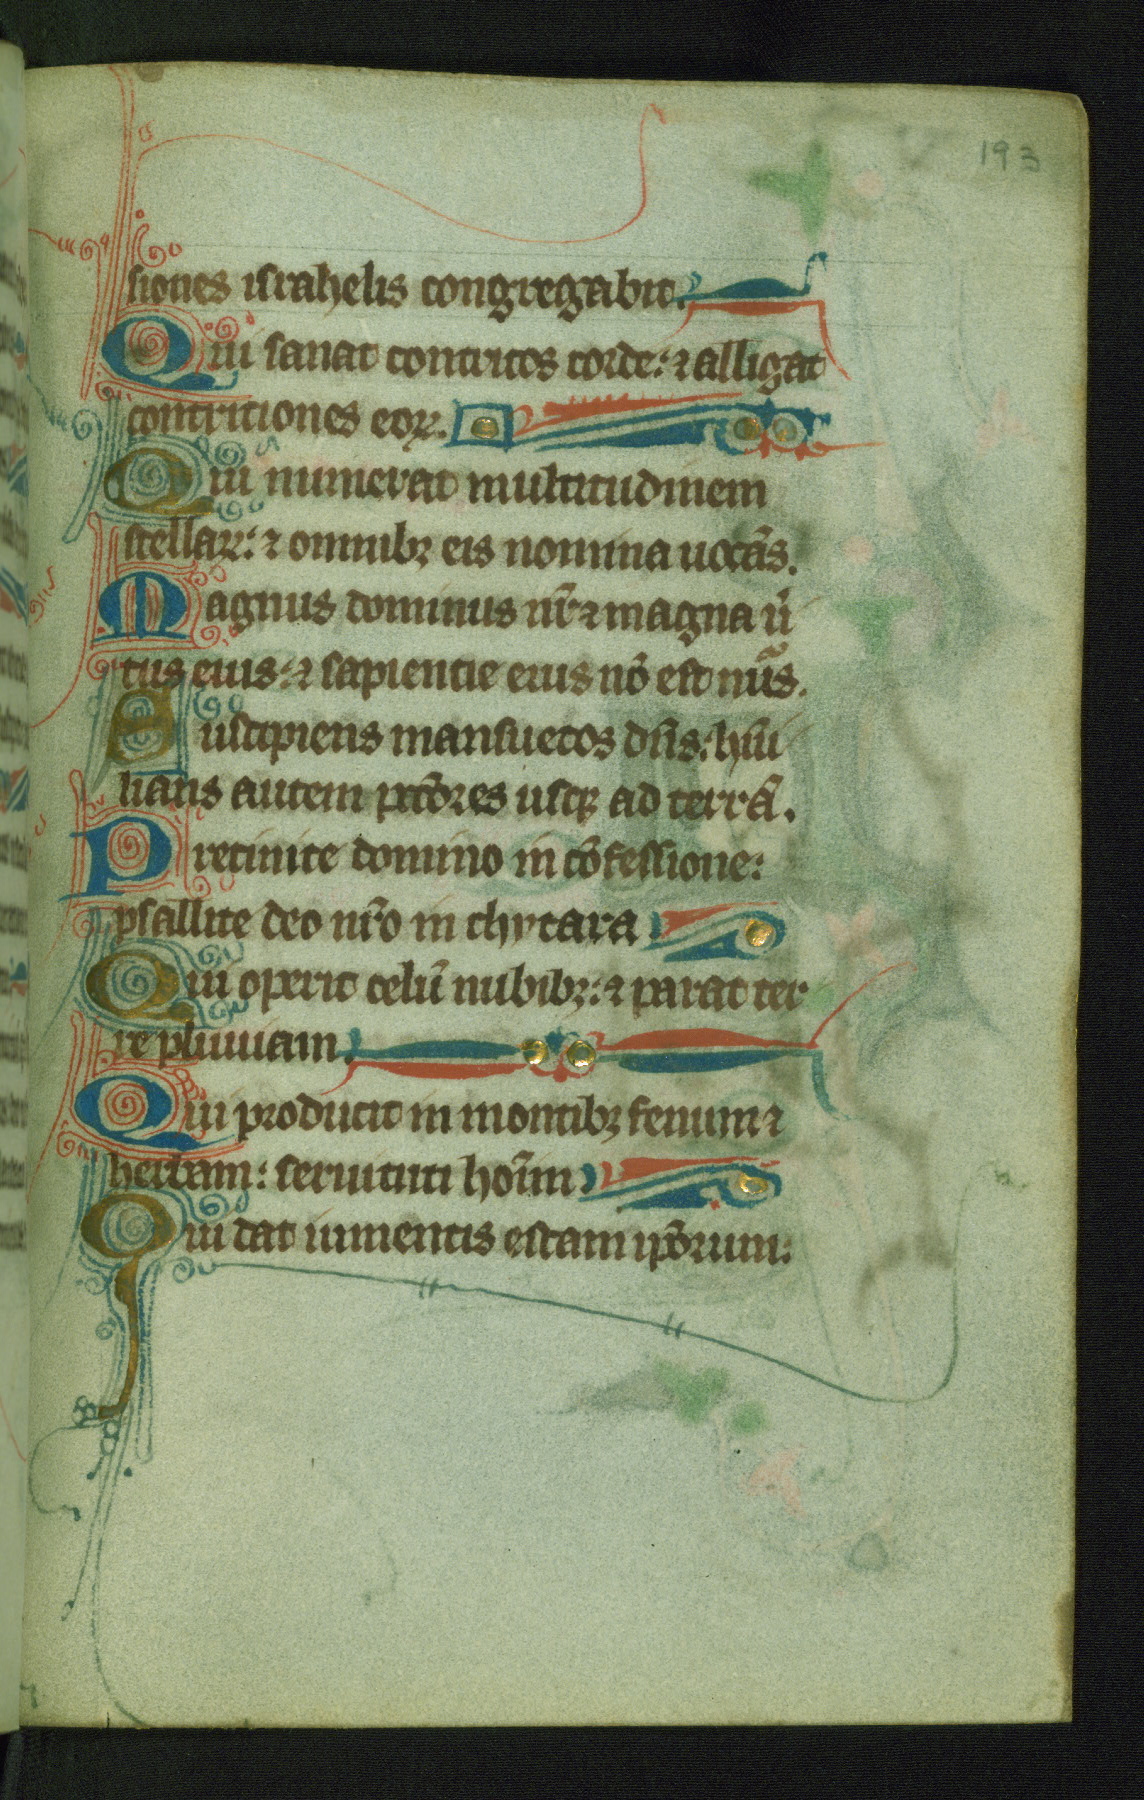 193
siones israhelis congregabit.
Qui sanat contritos corde: ⁊ alligat
contritiones eoꝝ.
Qui numerat multitudinem
stellaꝝ: ⁊ omnibꝫ eis nomina uocãs.
Magnus dominus nr̃ ⁊ magna uî
tus eius: ⁊ sapientie eius nõ est nũs.
Suscipiens mansuetos dñs: hũi
lians autem pctõres usqꝫ ad terrã.
Precinite domino in cõfessione:
psallite deo nr̃o in chytara
Qui operit celũ nubibꝫ: ⁊ parat ter
re pluuiam.
Qui producit in montibꝫ fenum ⁊
herbam: seruituti hoĩm
Qui dat iumentis escam ip̃orum: